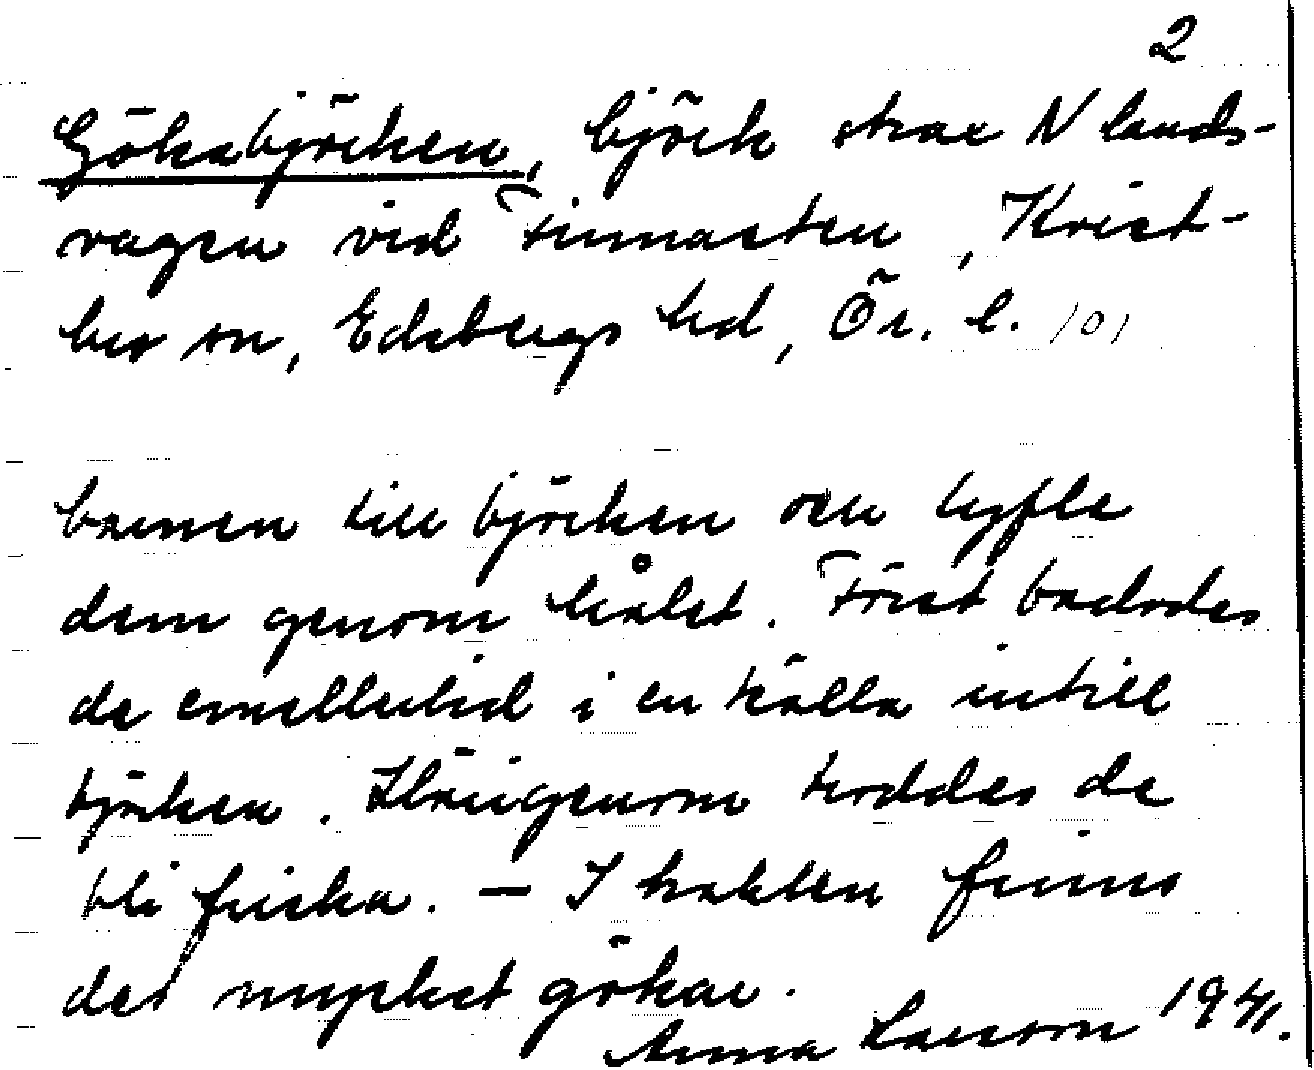 2
Göksbjörken, björk strax N lands-
vägen vid Finnasten, Krist-
bergs sn, Edsbergs hd, Ör. l. 101
barnen till björken och lyfte
dem genom hålet. Först badades
de emellertid i en källa intill
björken. Härigenom troddes de
bli friska. — I trakten finns
det mycket gökar.
Anna Larsson 1941.